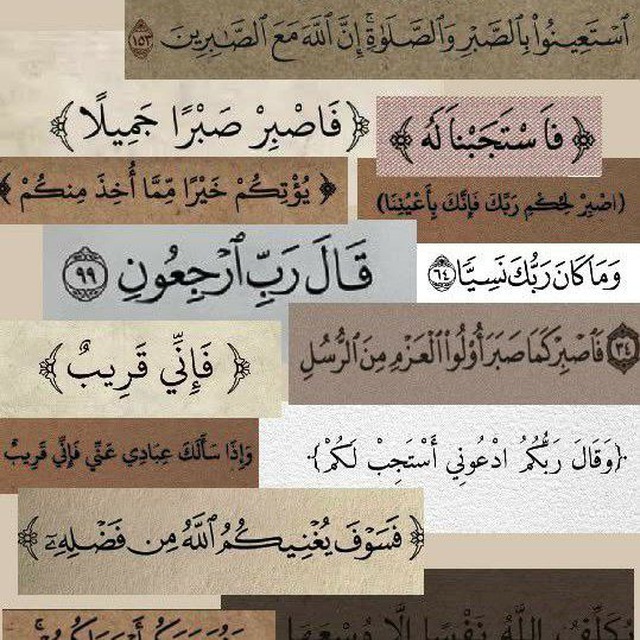 ٱسْتَعِينُوا۟ بِٱلصَّبْرِ وَٱلصَّلَوٰةِ ۚ إِنَّ ٱللَّهَ مَعَ ٱلصَّـٰبِرِينَ ١٥٣
﴿ فَاصْبِرْ صَبْرًا جَمِيلًا ﴾
﴿ فَاسْتَجَبْنَا لَهُ ﴾
﴿ يُؤْتِكُمْ خَيْرًا مِّمَّا أُخِذَ مِنكُمْ ﴾
(اصْبِرْ لِحُكْمِ رَبِّكَ فَإِنَّكَ بِأَعْيُنِنَا)
قَالَ رَبِّ ٱرْجِعُونِ ٩٩
وَمَا كَانَ رَبُّكَ نَسِيًّا ٦٤
٣٤ فَٱصْبِرْ كَمَا صَبَرَ أُو۟لُوا۟ ٱلْعَزْمِ مِنَ ٱلرُّسُلِ
﴿ فَإِنِّي قَرِيبٌ ﴾
﴿وَقَالَ رَبُّكُمُ ادْعُونِي أَسْتَجِبْ لَكُمْ﴾
وَإِذَا سَأَلَكَ عِبَادِي عَنِّي فَإِنِّي قَرِيبٌ
﴿ فَسَوْفَ يُغْنِيكُمُ ٱللَّهُ مِن فَضْلِهِۦٓ ﴾
يُكَلِّفُ ٱللَّهُ نَفْسًا إِلَّا وُسْعَهَا